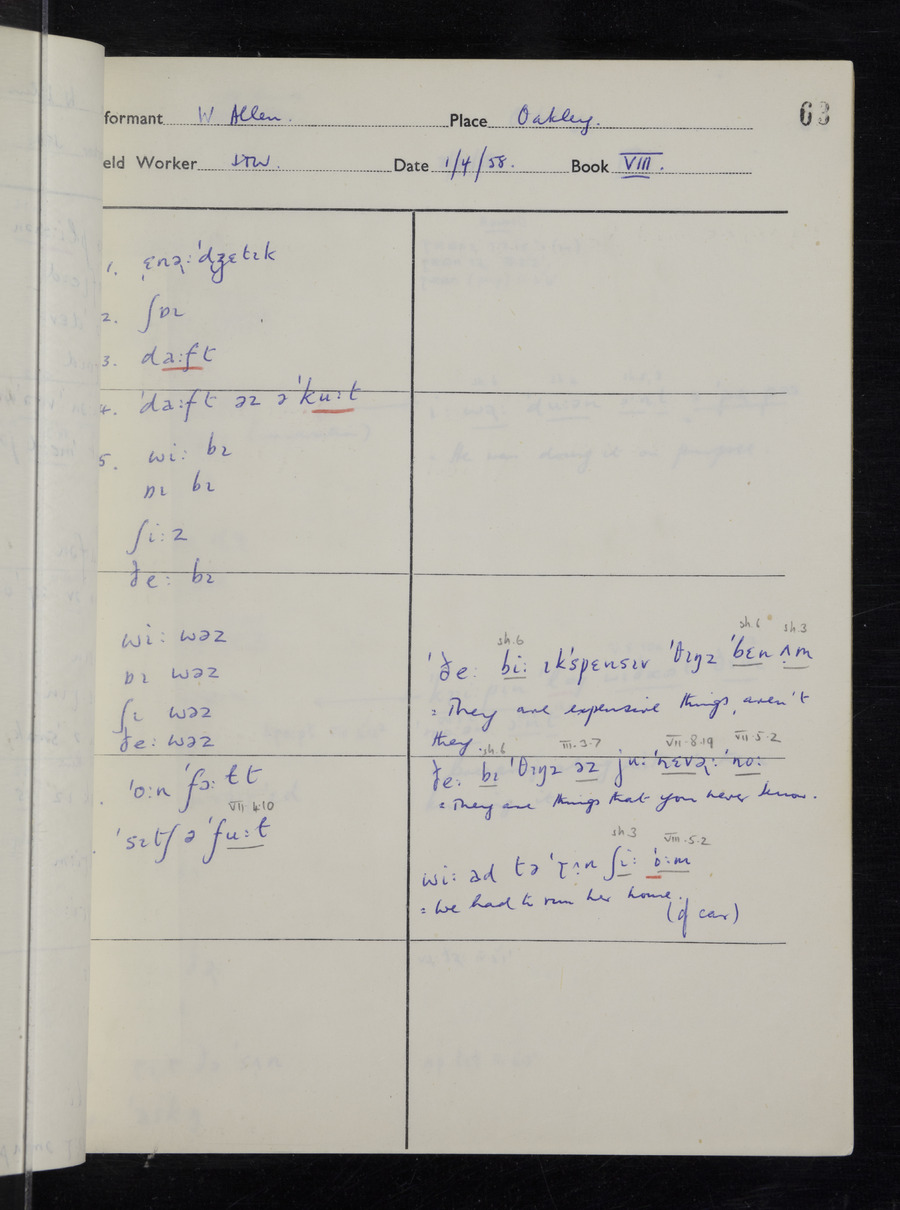 formant W Allen. Place Oakley. 63
eld Worker STW. Date 1/4/58. Book VIII.
1. ɛnəɽ:ˈdʒɛtɪk
2. ʃɒɪ
3. da:ft
4. ˈda:ft əz ə ˈku:t
5. wi: bɪ
ɒɪ bɪ
ʃi: z
ðe: bɪ
wi: wəz
ɒɪ wəz
ʃɪ wəz
ðe: wəz
ˈɒ:n ˈfɔ: tt
VII 4.10
ˈsɪtʃ ə ˈfu:t
sh.6 sh.6 sh.3
ˈðe: bi: ɪkˈspɛnsɪv ˈθɪŋz ˈbɛn ʌm
= They are expensive things, aren't
they.
sh.6 III.3.7 VII.8.19 VII.5.2
ðe: bɪ ˈθɪŋz əz ju: ˈnɛvəɽ: ˈno:
= They are things that you never know.
sh.3 VIII.5.2
wi: ad tə ˈɽʌn ʃi: ˈo:m
= We had to run her home.
(of car)